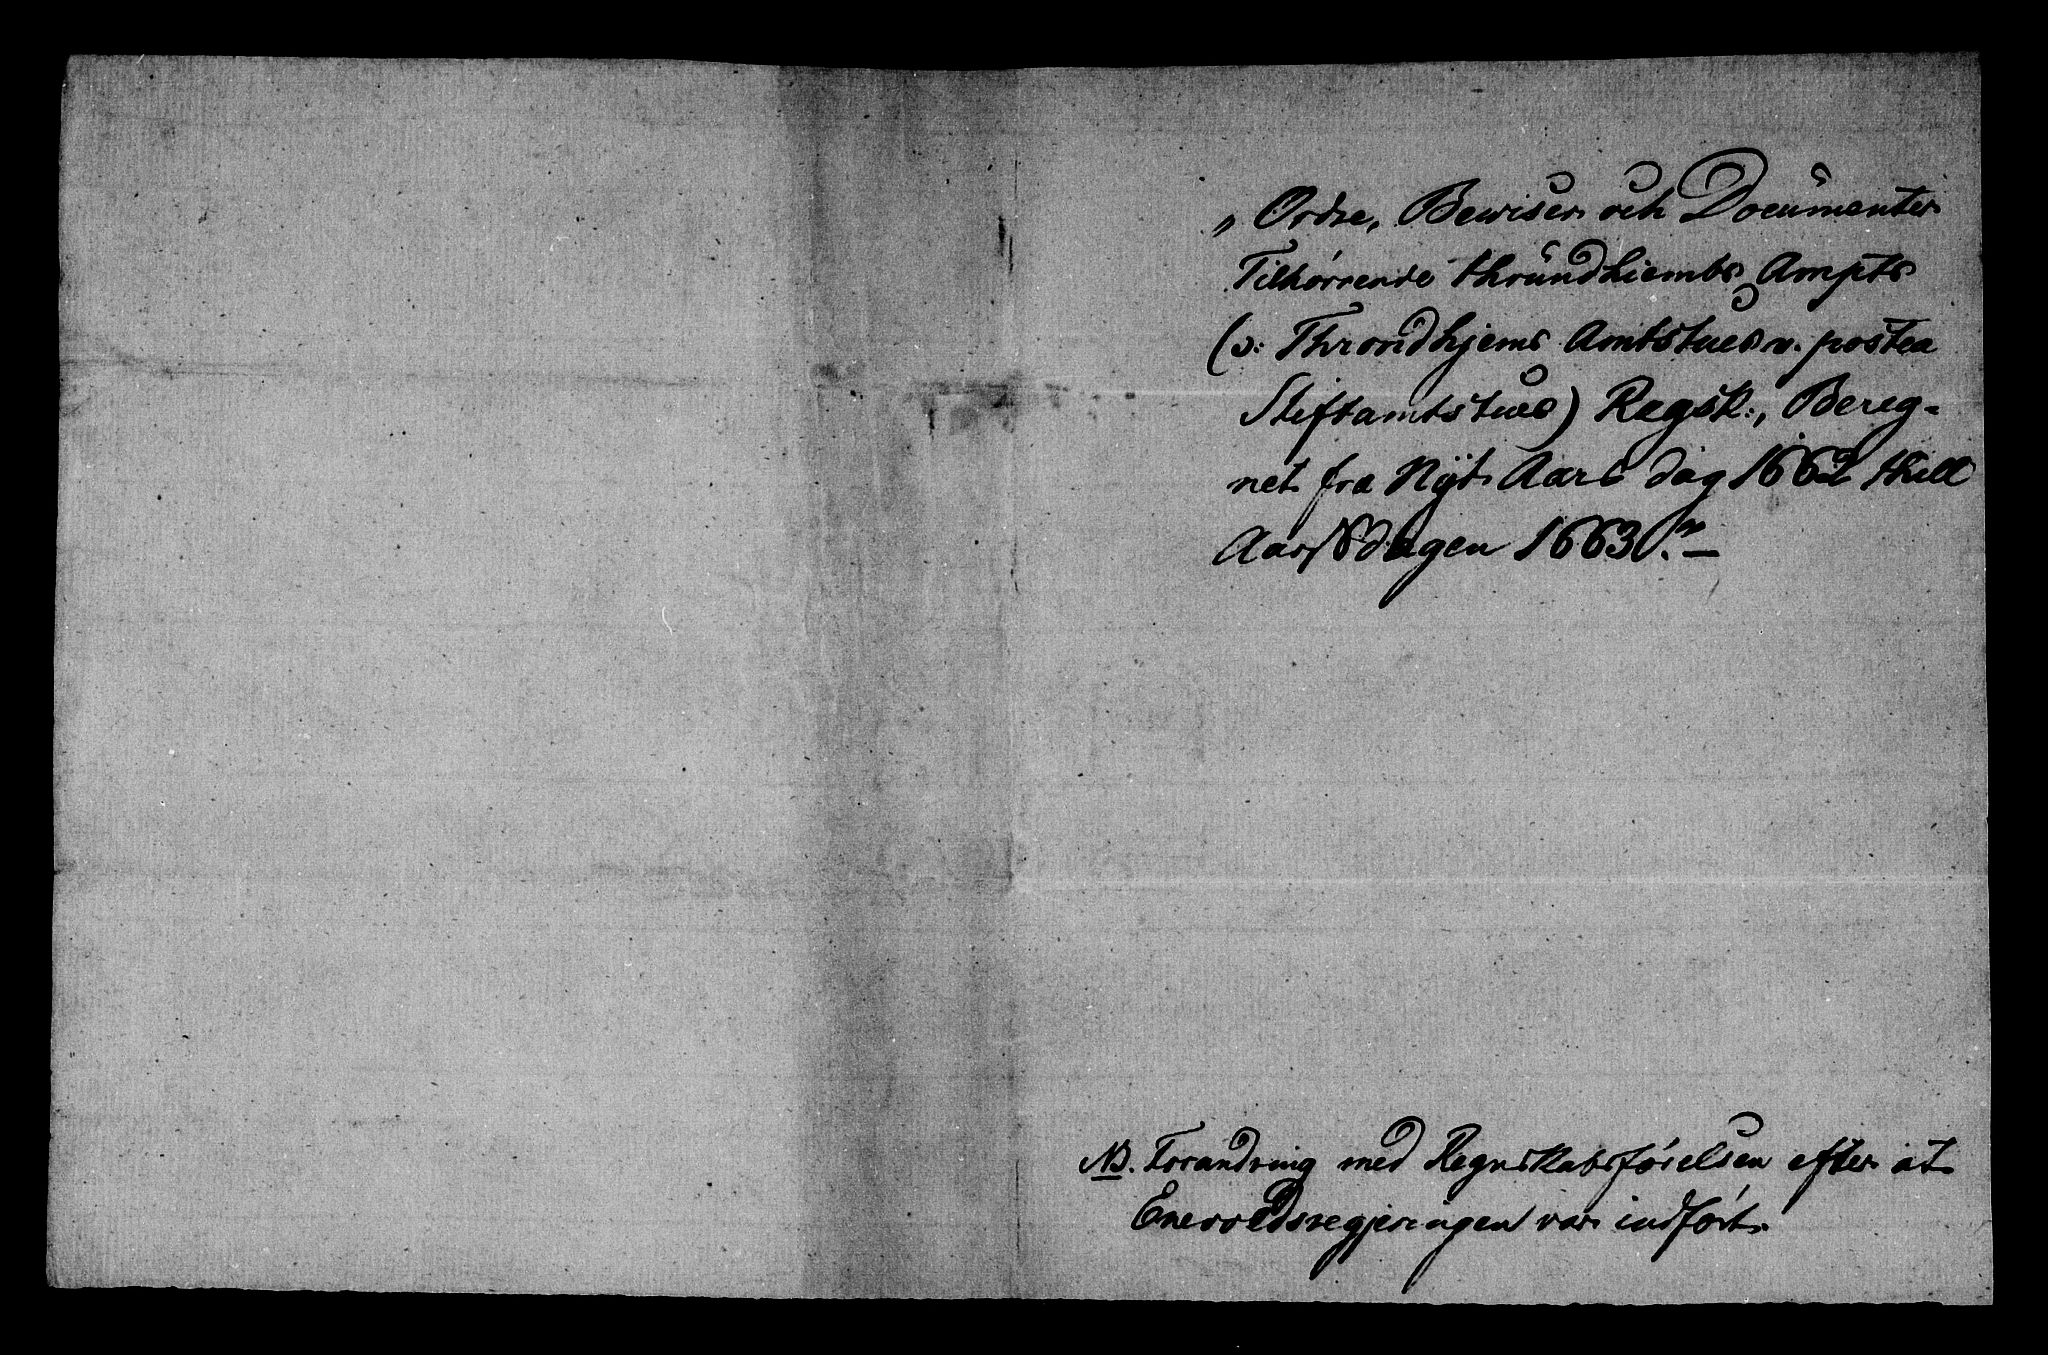 „Ordre, Bewiser och Documenter
Tilhørrende thrundhiembs Ampts
(ɔ: Throndhjems Amtstues v. postea
Stiftamtstues) Regsk:, Bereg-
net fra Nyt Aars dag 1662 till
Aarsdagen 1663.“ —
NB. Forandring med Regnskabsførelsen efter at
Enevoldsregjeringen var indført.